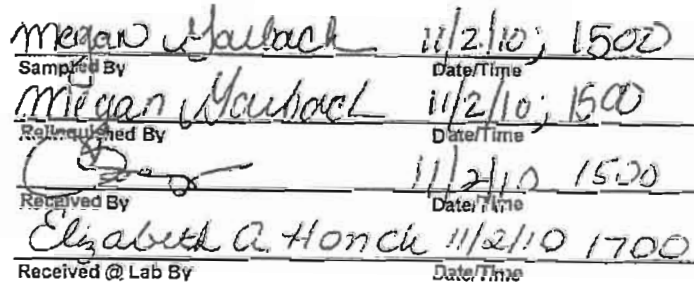 Megan Maubach 11/2/10; 1500
Sampled By Date/Time
Megan Maubach 11/2/10; 1500
Relinquished By Date/Time
11/2/10 1500
Received By Date/Time
Elizabeth A. Honch 11/2/10 1700
Received @ Lab By Date/Time